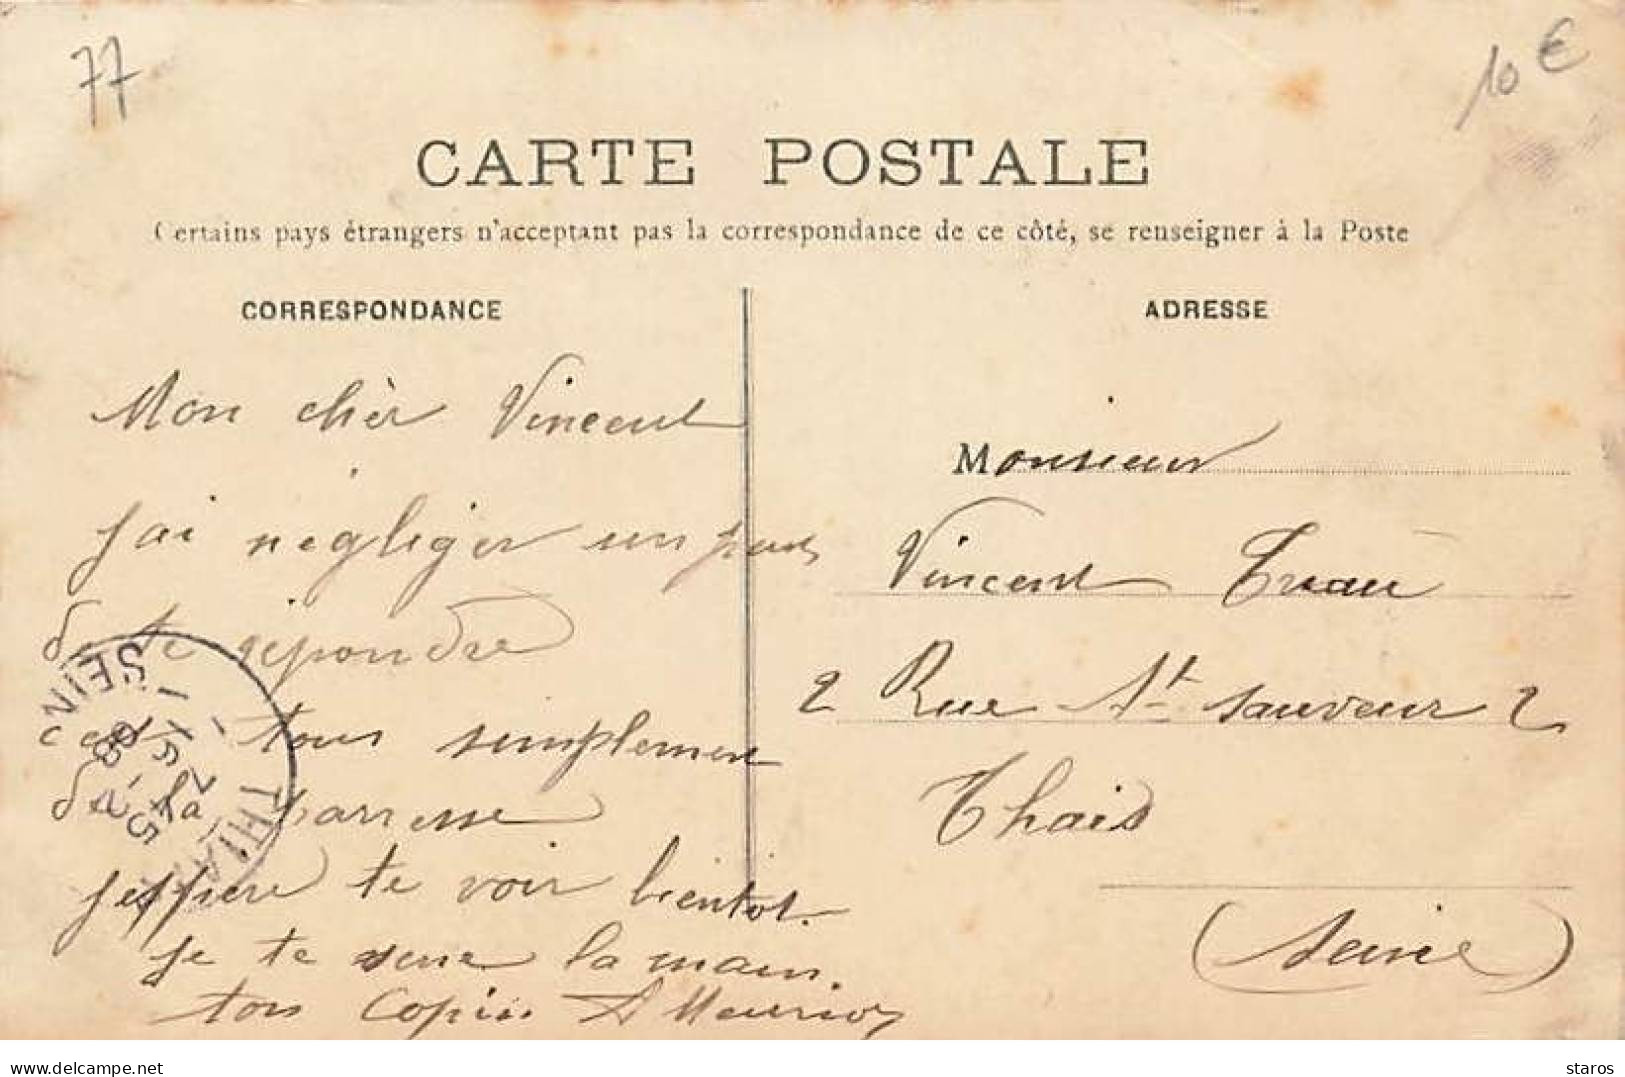 77
10 €
CARTE POSTALE
Certains pays étrangers n'acceptant pas la correspondance de ce côté, se renseigner à la Poste
CORRESPONDANCE
Mon chèr Vincent
j'ai négliger un peu
de te répondre
c'est tous simplement
de la parresse
j'espère te voir bientot.
je te serre la main.
ton Copin A
ADRESSE
Monsieur
Vincent
2 Rue St Sauveur 2
Thiais
(Seine)
THIAIS
SEINE
7 45
16 - 2
08
delcampe.net
staros